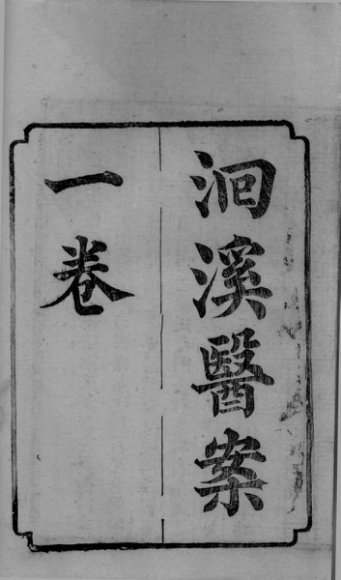 洄溪醫案
一卷